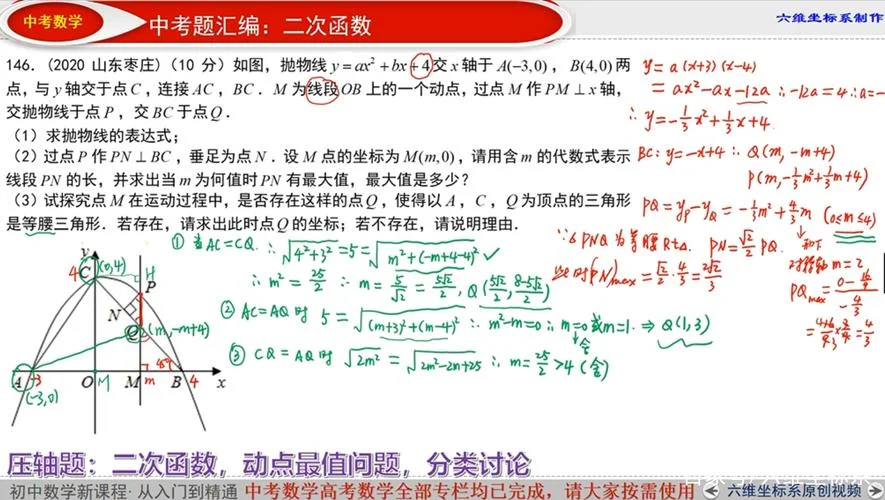 中考数学
中考题汇编：二次函数
六维坐标系制作
146.（2020 山东枣庄）（10 分）如图，抛物线 y = ax² + bx + 4 交 x 轴于 A(−3,0)，B(4,0) 两
点，与 y 轴交于点 C，连接 AC，BC．M 为线段 OB 上的一个动点，过点 M 作 PM ⊥ x 轴，
交抛物线于点 P，交 BC 于点 Q．
（1）求抛物线的表达式；
（2）过点 P 作 PN ⊥ BC，垂足为点 N．设 M 点的坐标为 M(m,0)，请用含 m 的代数式表示
线段 PN 的长，并求出当 m 为何值时 PN 有最大值，最大值是多少？
（3）试探究点 M 在运动过程中，是否存在这样的点 Q，使得以 A，C，Q 为顶点的三角形
是等腰三角形．若存在，请求出此时点 Q 的坐标；若不存在，请说明理由．
y = a(x+3)(x-4)
= ax²-ax-12a ∴ -12a=4 ∴a=-
∴ y=-1/3x²+1/3x+4
BC: y=-x+4 ∴ Q(m, -m+4)
P(m, -1/3m²+1/3m+4)
PQ = yP-yQ = -1/3m²+4/3m (0≤m≤4)
∵ △PNQ 为等腰Rt△. PN=√2/2 PQ.
对称轴 m=2
(PN)max = √2/2 · 4/3 = 2√2/3
PQmax = (0-16/9)/(-4/3)
= 4/3
① 当AC=CQ. ∴ √(4²+3²)=5=√(m²+(-m+4-4)²) ✓
∴ m²=25/2 ∴ m=5/√2=5√2/2, Q(5√2/2, (8-5√2)/2)
② AC=AQ 时 5=√((m+3)²+(m-4)²) ∴ m²-m=0 ∴ m=0或m=1. ⇒ Q(1,3)
舍
③ CQ=AQ 时 √(2m²)=√(2m²-2m+25) ∴ m=25/2>4 (舍)
y
4 C (0,4) H
P
N
Q (m,-m+4)
45°
A -3 O M M m B 4 x
(-3,0)
压轴题：二次函数，动点最值问题，分类讨论
初中数学新课程· 从入门到精通 中考数学高考数学全部专栏均已完成，请大家按需使用 六维坐标系原创视频